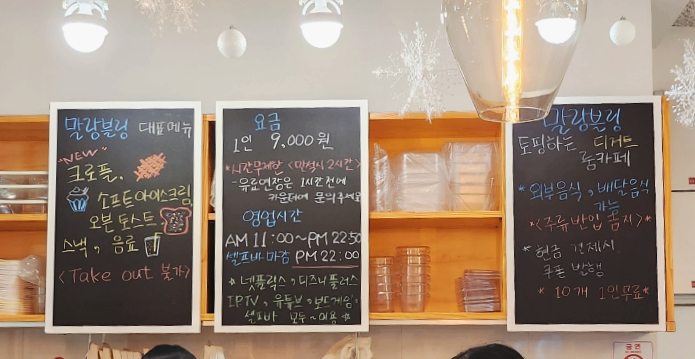 말랑블링 대표메뉴
"NEW"
크로플.
소프트아이스크림,
오븐 토스트
스낵, 음료
<Take out 불가>
요금
1인 9,000원
*시간무제한 <만석시 2시간>
-유료연장은 1시간전에
카운터에 문의주세요
영업시간
AM 11:00~PM 22:50
셀프바 마감 PM 22:00
* 넷플릭스, 디즈니플러스
IPTV, 유튜브, 보드게임,
셀프바 모두~이용 *
말랑블링
토핑하는 디저트
룸카페
* 외부음식, 배달음식
가능
*<주류 반입 금지>*
* 현금 결제시
쿠폰 발행
* 10개 1인무료 *
금연